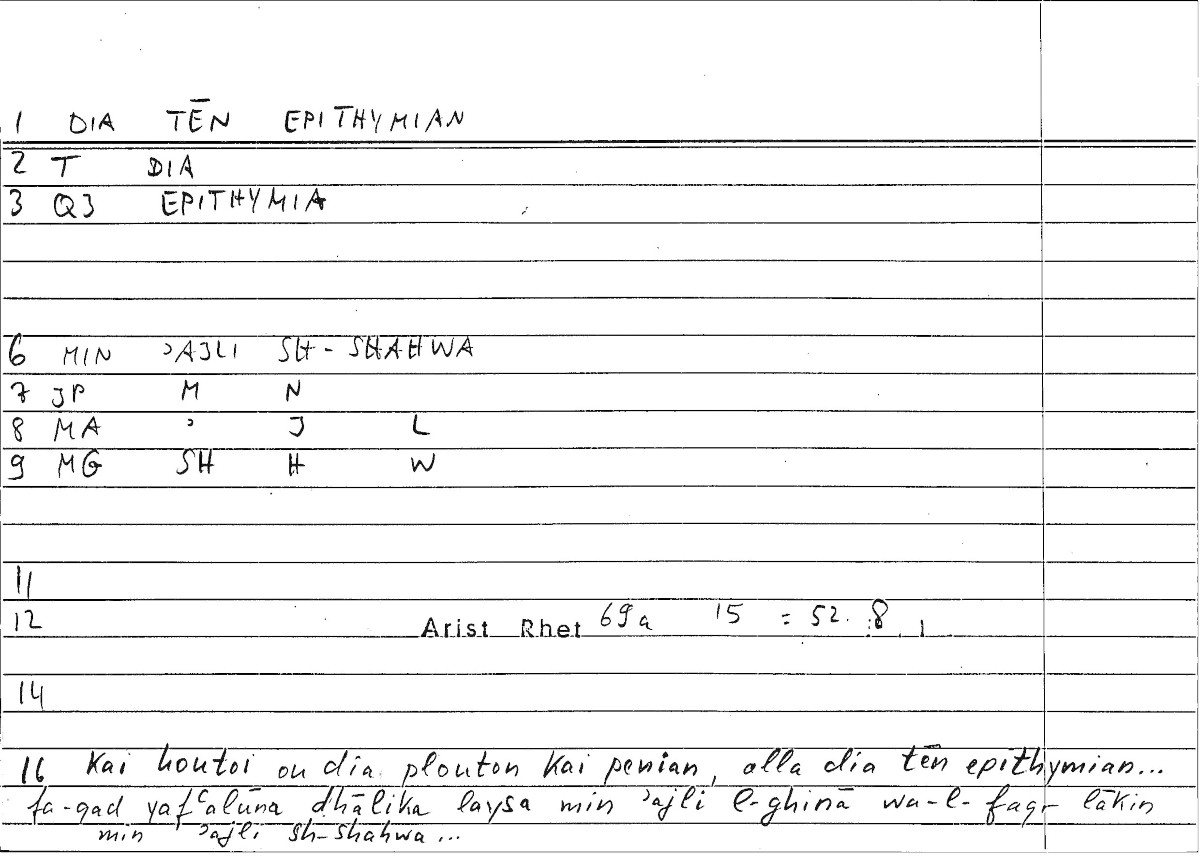 1 DIA TĒN EPITHYMIAN
2 T DIA
3 Q3 EPITHYMIA
6 MIN ʾAJLI SH-SHAHWA
7 JP M N
8 MA ʾ J L
9 MG SH H W
11
12 Arist Rhet 69a 15 = 52. 8
14
16 Kai houtoi ou dia plouton kai penian, alla dia tēn epithymian...
fa-qad yafʿalūna dhālika laysa min ʾajli l-ghinā wa-l-faqr lākin
min ʾajli sh-shahwa...